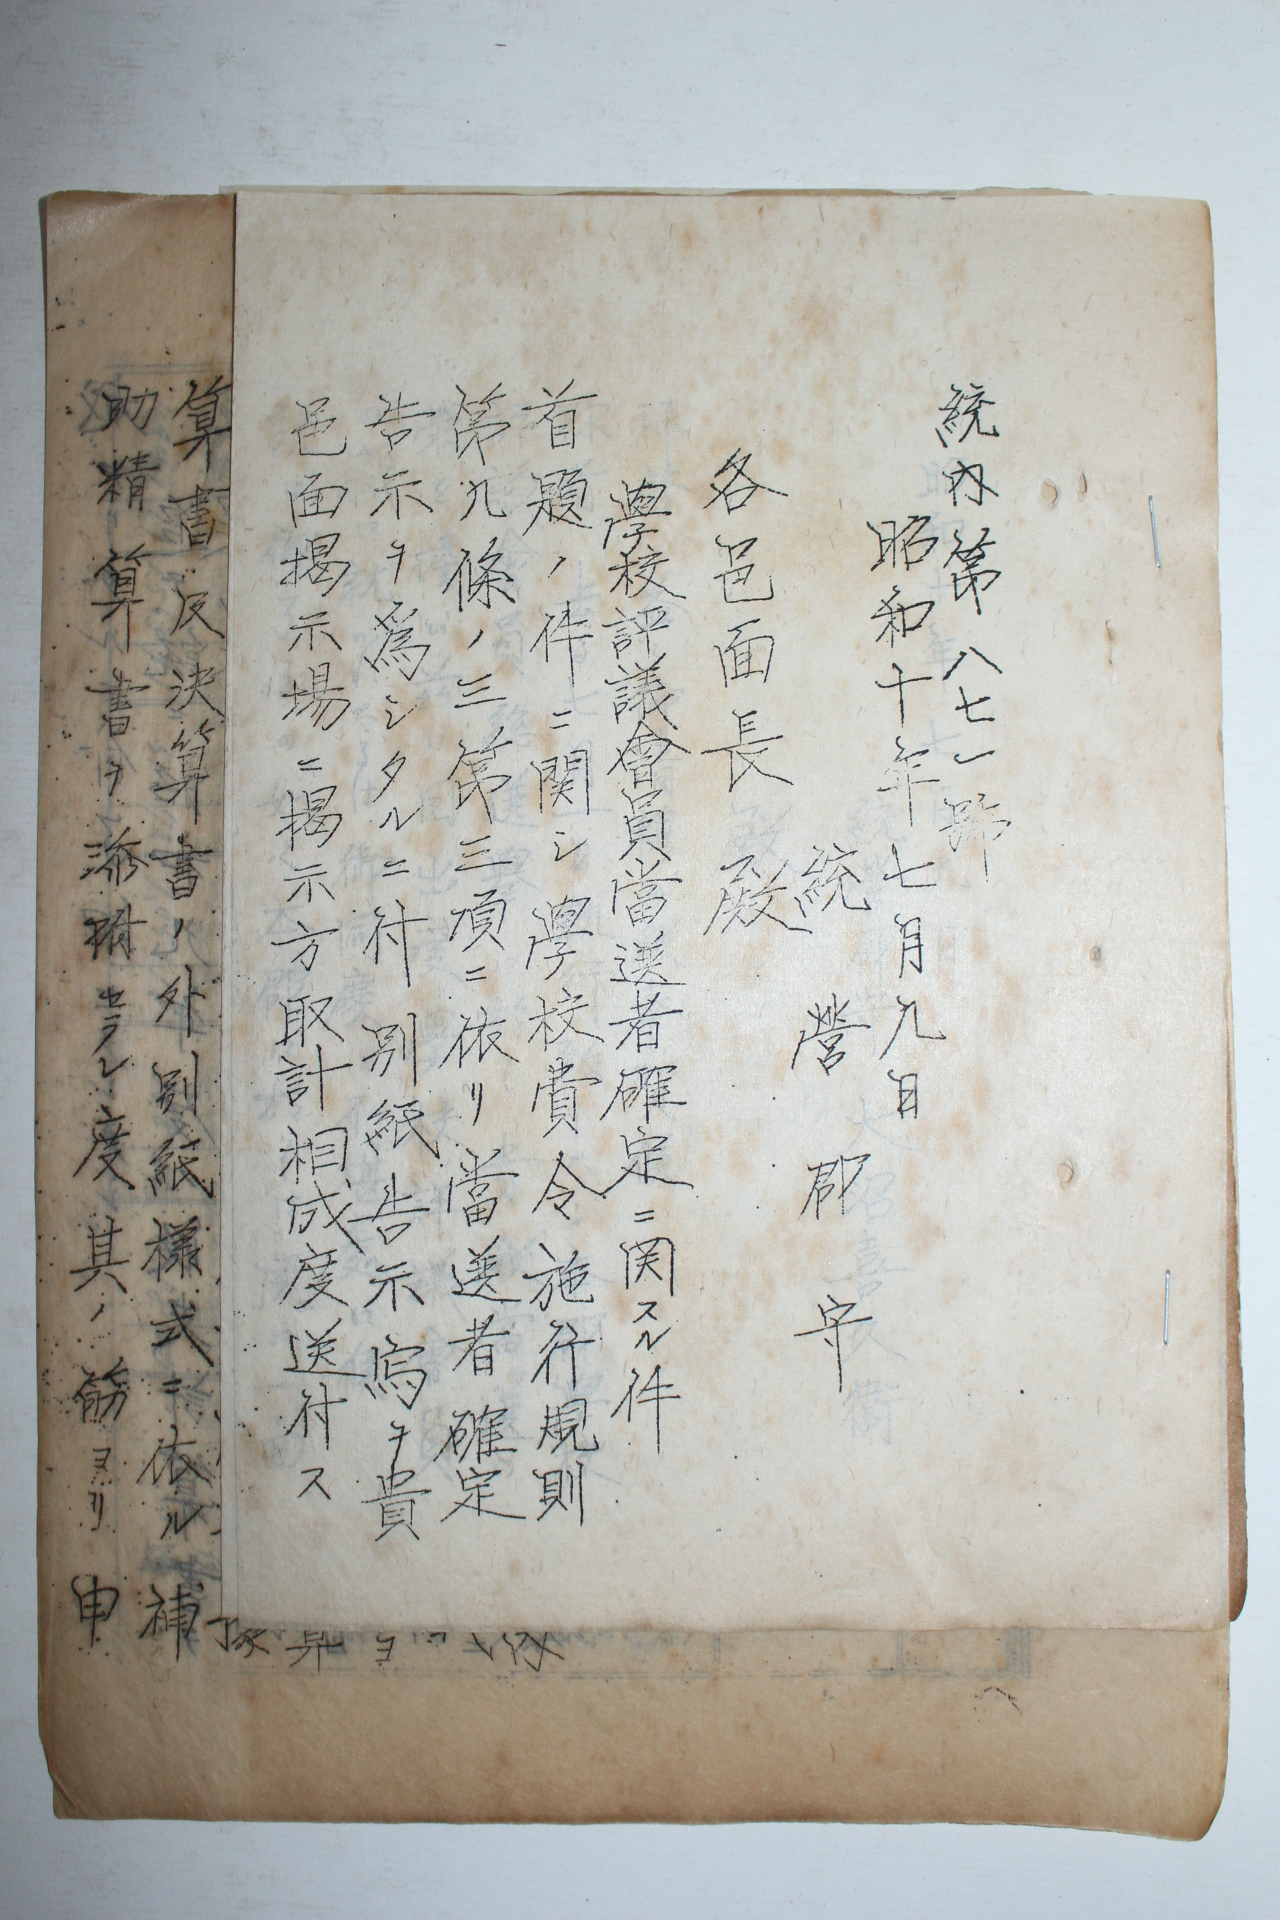 統内第八七一號
昭和十年七月九日
統營郡守
各邑面長殿
學校評議會員當選者確定ニ関スル件
首題ノ件ニ関シ學校費令施行規則
第九條ノ三第三項ニ依リ當選者確定
告示ヲ爲シタルニ付別紙告示寫ヲ貴
邑面揭示場ニ揭示方取計相成度送付ス
算書及決算書ノ外別紙樣式ニ依ル補
助精算書ヲ添附セラレ度其ノ筋ヨリ申